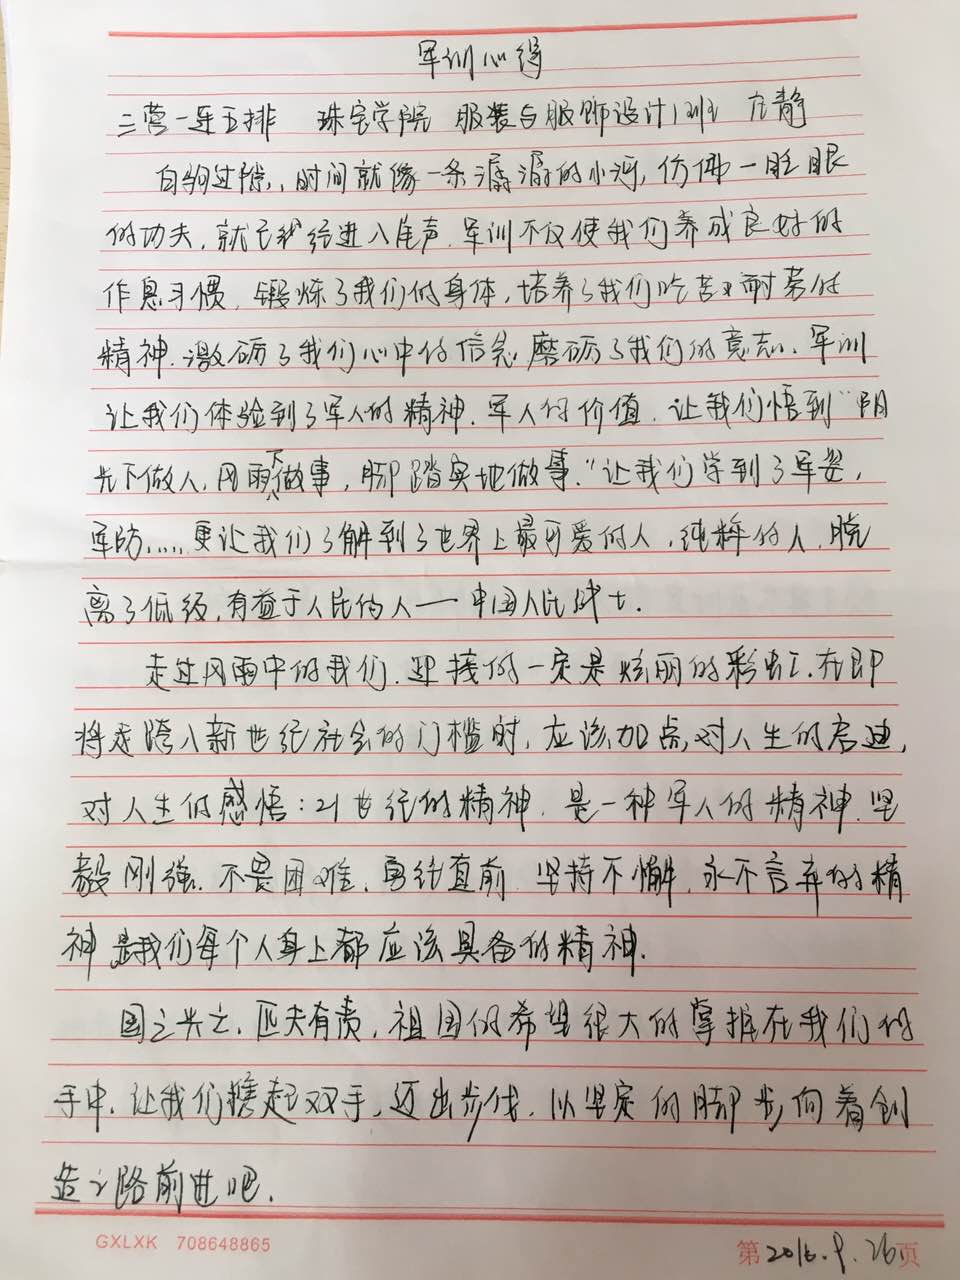 军训心得
二营一连五排 珠宝学院 服装与服饰设计1班 庄静
白驹过隙,时间就像一条潺潺的小河,仿佛一眨眼
的功夫,就已经进入尾声.军训不仅使我们养成良好的
作息习惯,锻炼了我们的身体,培养了我们吃苦耐劳的
精神.激励了我们心中的信念,磨砺了我们的意志、军训
让我们体验到了军人的精神.军人的价值.让我们悟到“阴
光下做人,风雨下做事,脚踏实地做事."让我们学到了军姿,
军防……更让我们了解到了世界上最可爱的人,纯粹的人,脱
离了低级,有益于人民的人——中国人民战士.
走过风雨中的我们.迎接的一定是炫丽的彩虹.在即
将走跨入新世纪社会的门槛时,应该加点对人生的启迪,
对人生的感悟:21世纪的精神.是一种军人的精神.坚
毅刚强.不畏困难.勇往直前.坚持不懈.永不言弃的精
神是我们每个人身上都应该具备的精神.
国之兴亡.匹夫有责,祖国的希望很大的掌握在我们的
手中.让我们携起双手,迈出步伐.以坚定的脚步向着创
造之路前进吧.
GXLXK 708648865
第2016.9.26页